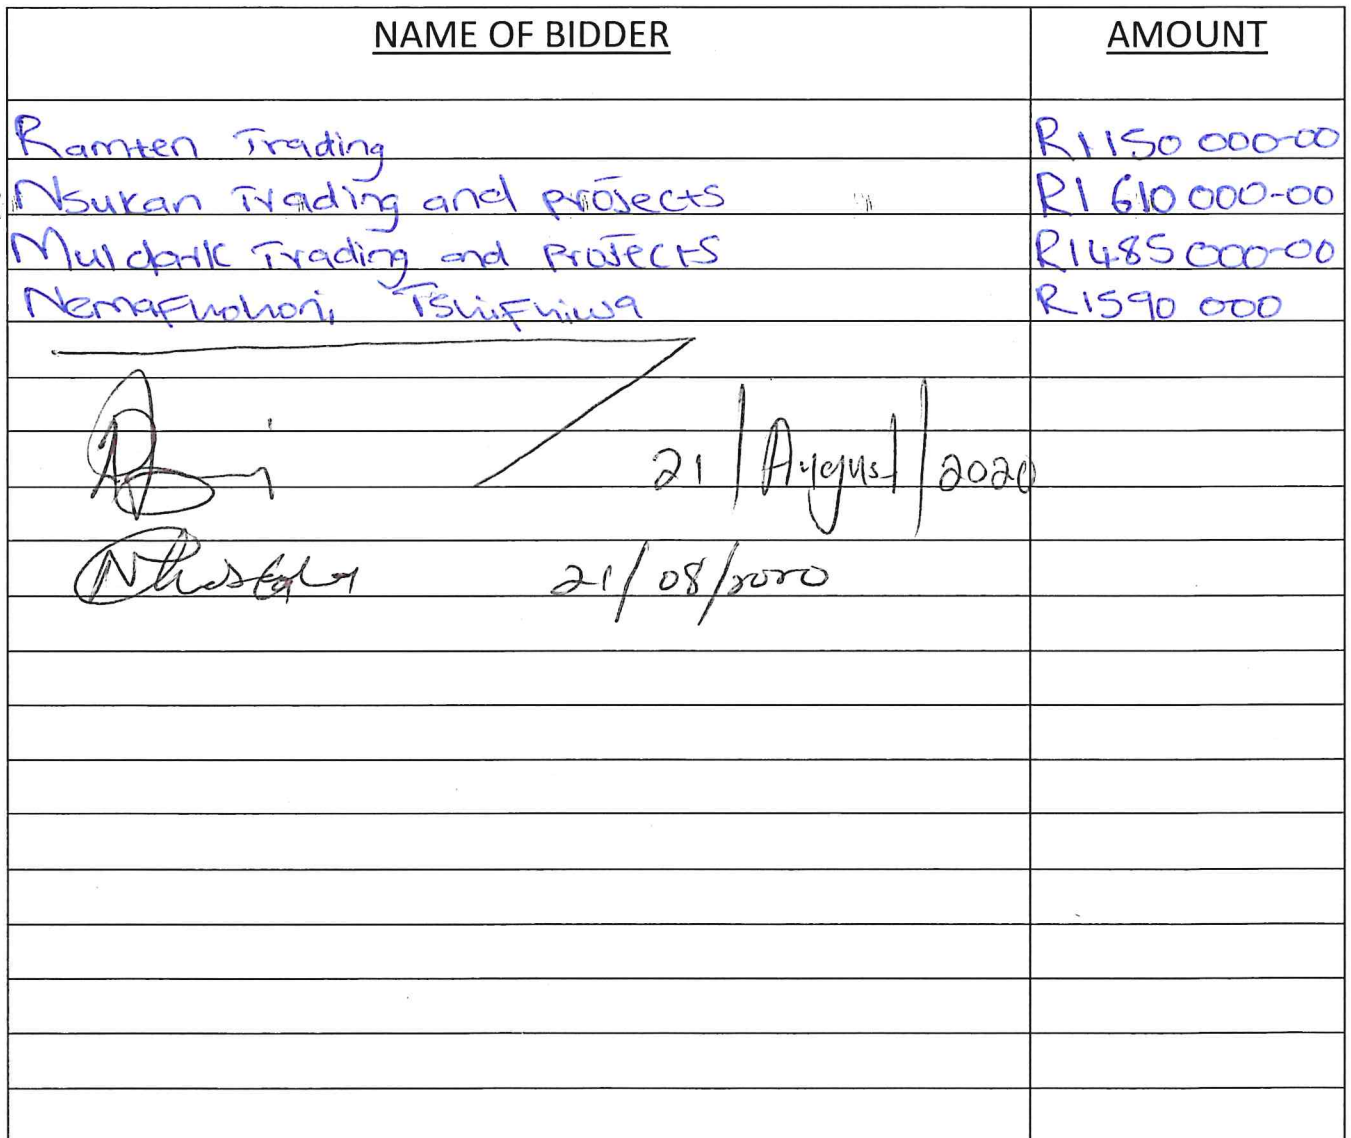 NAME OF BIDDER AMOUNT
Ramten Trading R1150 000-00
Nsukan Trading and projects R1 610 000-00
Muldark Trading and Projects R1485 000-00
Nemafhohoni, Tshifhiwa R1590 000
21/August/2020
21/08/2020